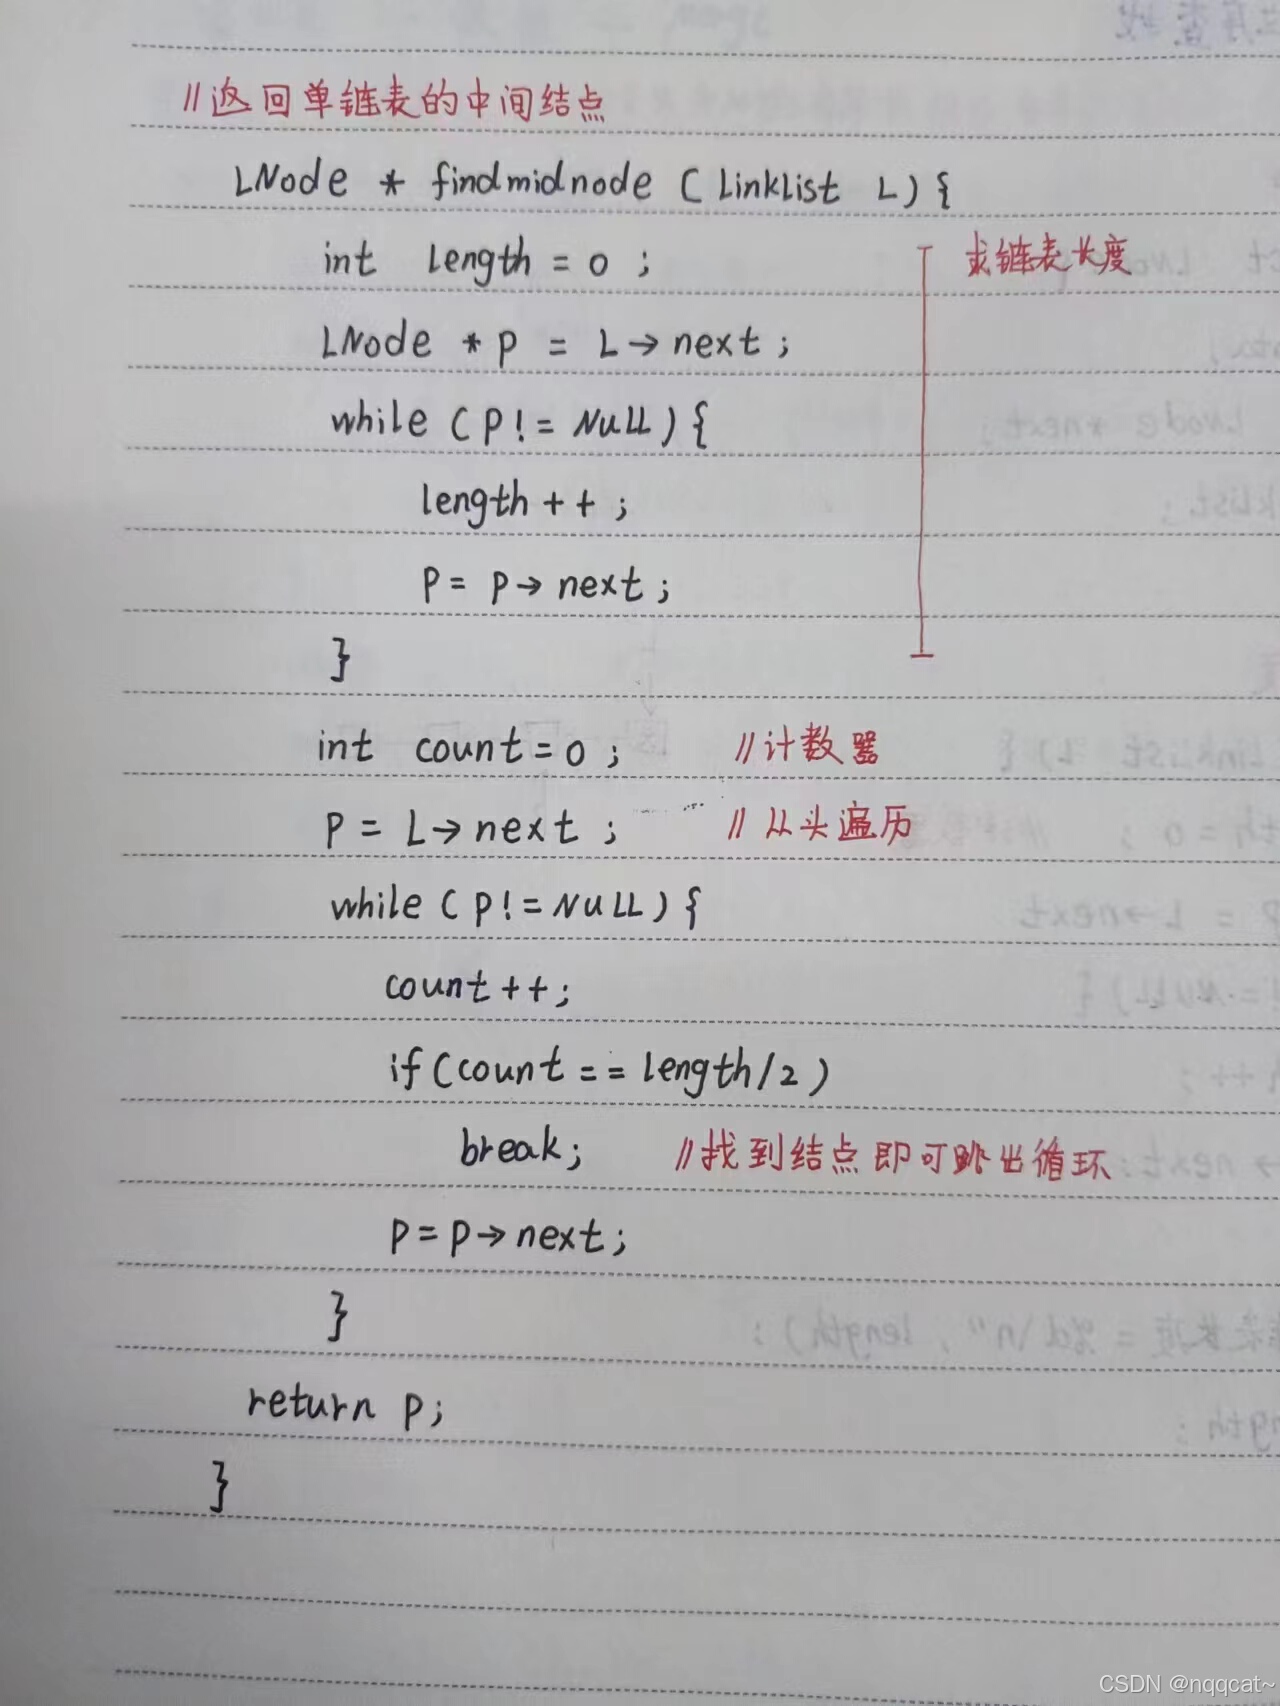 //返回单链表的中间结点
LNode * findmidnode (Linklist L){
int length = 0 ; 求链表长度
LNode *p = L→next ;
while (p!= NULL){
length++ ;
p= p→next ;
}
int count=0 ; //计数器
p = L→next ; //从头遍历
while (p!=NULL){
count++;
if(count==length/2)
break; //找到结点即可跳出循环
p=p→next;
}
return p;
}
CSDN @nqqcat~